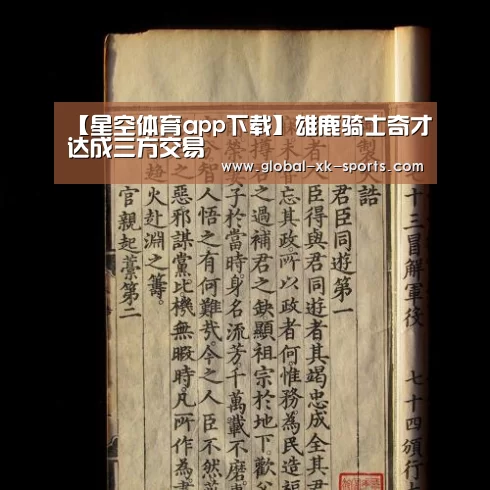 【星空体育app下载】雄鹿骑士奇才
达成三方交易
www.global-xk-sports.com
十三冒解軍後 七十四頒行
製 誥
君臣同遊第一
者臣得與君同遊者其竭忠成全其君
未嘗忘其政。所以政者何。惟務為民造福
之過補君之缺顯祖宗於地下。歡
子於當時。身名流芳。千萬載不磨。
智人悟之有何難哉。今之人臣不然
之惡邪謀黨比。機無暇時。凡所作為。
趨火赴淵之籌。
官親起藁第二